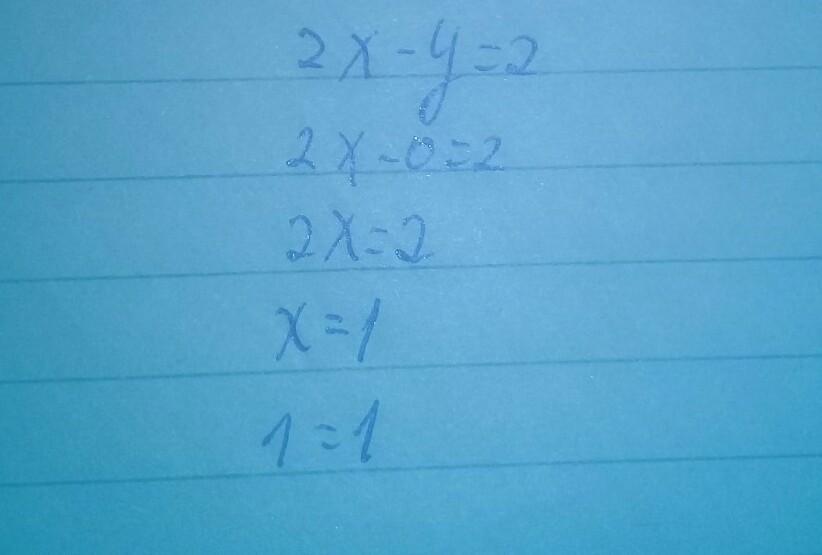 2x-y=2
2x-0=2
2x=2
x=1
1=1